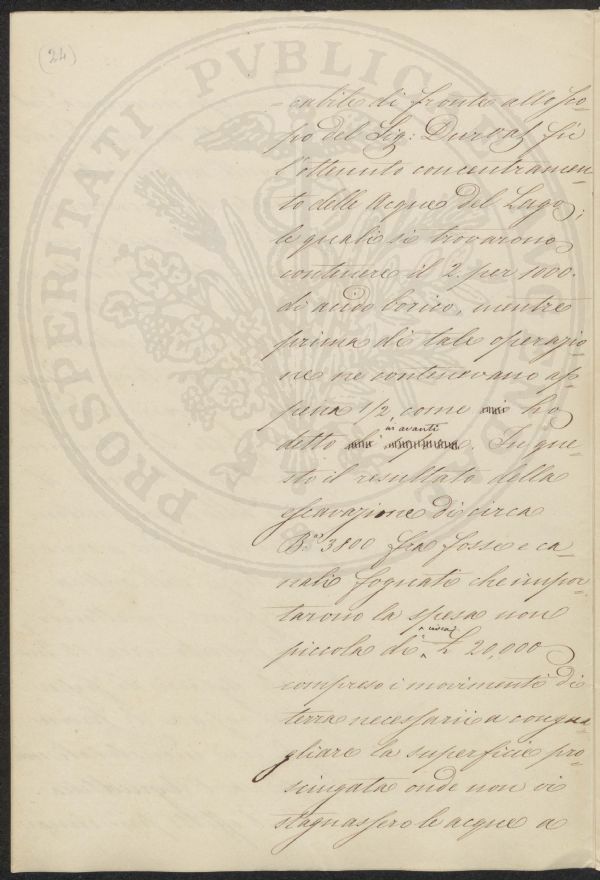 (24)
- cabile di fronte allo sco-
po del Sig: Durval fù
l'ottenuto concentramen-
to delle Acque del Lago;
le quali si trovarono
contenere il 2. per 1000.
di acido borico, mentre
prima di tale operazio-
ne ne contenevano ap-
pena 1/2, come ho
in avanti
detto. In que-
sto il resultato della
escavazione di circa
B.ª 3800 fra fosse e ca-
nali fognati che impor-
tarono la spesa non
circa
piccola di £ 20,000
compreso i movimenti di
terra necessarii a congua-
gliare la superficie pro-
sciugata onde non vi
stagnassero le acque a
PROSPERITATI PVBLICAE